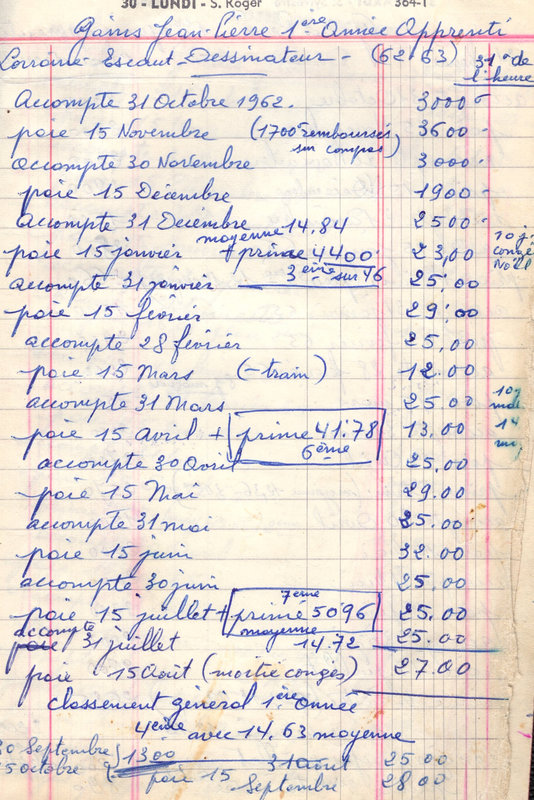 30 - LUNDI - S. Roger 364-1
Gains Jean-Pierre 1ere Année Apprenti
Lorraine-Escaut-Dessinateur - (62.63) 31° de l'heure
Accompte 31 Octobre 1962. 3000
paie 15 Novembre (1700 remboursés sur compas) 3600 -
accompte 30 Novembre 3000 -
paie 15 Décembre 1900 -
Accompte 31 Decembre 2500 -
moyenne 14,84
paie 15 janvier + prime 4400 23,00 10 j. congé Noël
3 eme sur 46
accompte 31 janvier 25,00
paie 15 février 29,00
accompte 28 février 25,00
paie 15 Mars (- train) 12.00
accompte 31 Mars 25.00
paie 15 Avril + prime 41.78 13.00
6 ème
accompte 30 Avril 25.00
paie 15 Mai 29.00
accompte 31 mai 25.00
paie 15 juin 32.00
accompte 30 juin 25.00
7 eme
paie 15 juillet + prime 5096 25.00
moyenne 14.72
accompte
paie 31 juillet 25.00
paie 15 Août (moitié congés) 27.00
classement général 1 ère année
4 eme avec 14.63 moyenne
30 Septembre
15 octobre } 1300 31 août 25 00
paie 15 Septembre 28 00